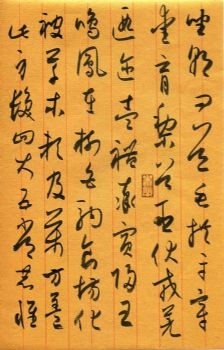 坐朝問道垂拱平章
愛育黎首臣伏戎羌
遐邇壹體率賓歸王
鳴鳳在樹白駒食場化
被草木賴及萬方蓋
此身髮四大五常恭惟